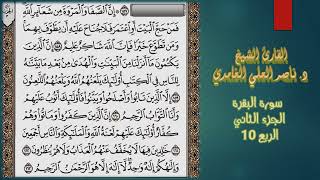 ۞ إِنَّ ٱلصَّفَا وَٱلْمَرْوَةَ مِن شَعَآئِرِ ٱللَّهِ
فَمَنْ حَجَّ ٱلْبَيْتَ أَوِ ٱعْتَمَرَ فَلَا جُنَاحَ عَلَيْهِ أَن يَطَّوَّفَ بِهِمَا
وَمَن تَطَوَّعَ خَيْرًا فَإِنَّ ٱللَّهَ شَاكِرٌ عَلِيمٌ ۝ إِنَّ ٱلَّذِينَ
يَكْتُمُونَ مَآ أَنزَلْنَا مِنَ ٱلْبَيِّنَٰتِ وَٱلْهُدَىٰ مِنۢ بَعْدِ مَا بَيَّنَّٰهُ
لِلنَّاسِ فِى ٱلْكِتَٰبِ أُو۟لَٰٓئِكَ يَلْعَنُهُمُ ٱللَّهُ وَيَلْعَنُهُمُ ٱللَّٰعِنُونَ
۝ إِلَّا ٱلَّذِينَ تَابُوا۟ وَأَصْلَحُوا۟ وَبَيَّنُوا۟ فَأُو۟لَٰٓئِكَ أَتُوبُ عَلَيْهِمْ
وَأَنَا ٱلتَّوَّابُ ٱلرَّحِيمُ ۝ إِنَّ ٱلَّذِينَ كَفَرُوا۟ وَمَاتُوا۟ وَهُمْ
كُفَّارٌ أُو۟لَٰٓئِكَ عَلَيْهِمْ لَعْنَةُ ٱللَّهِ وَٱلْمَلَٰٓئِكَةِ وَٱلنَّاسِ أَجْمَعِينَ
۝ خَٰلِدِينَ فِيهَا لَا يُخَفَّفُ عَنْهُمُ ٱلْعَذَابُ وَلَا هُمْ يُنظَرُونَ
۝ وَإِلَٰهُكُمْ إِلَٰهٌ وَٰحِدٌ لَّآ إِلَٰهَ إِلَّا هُوَ ٱلرَّحْمَٰنُ ٱلرَّحِيمُ
القارئ الشيخ
د. ناصر العلي الغامدي
سورة البقرة
الجزء الثاني
الربع 10